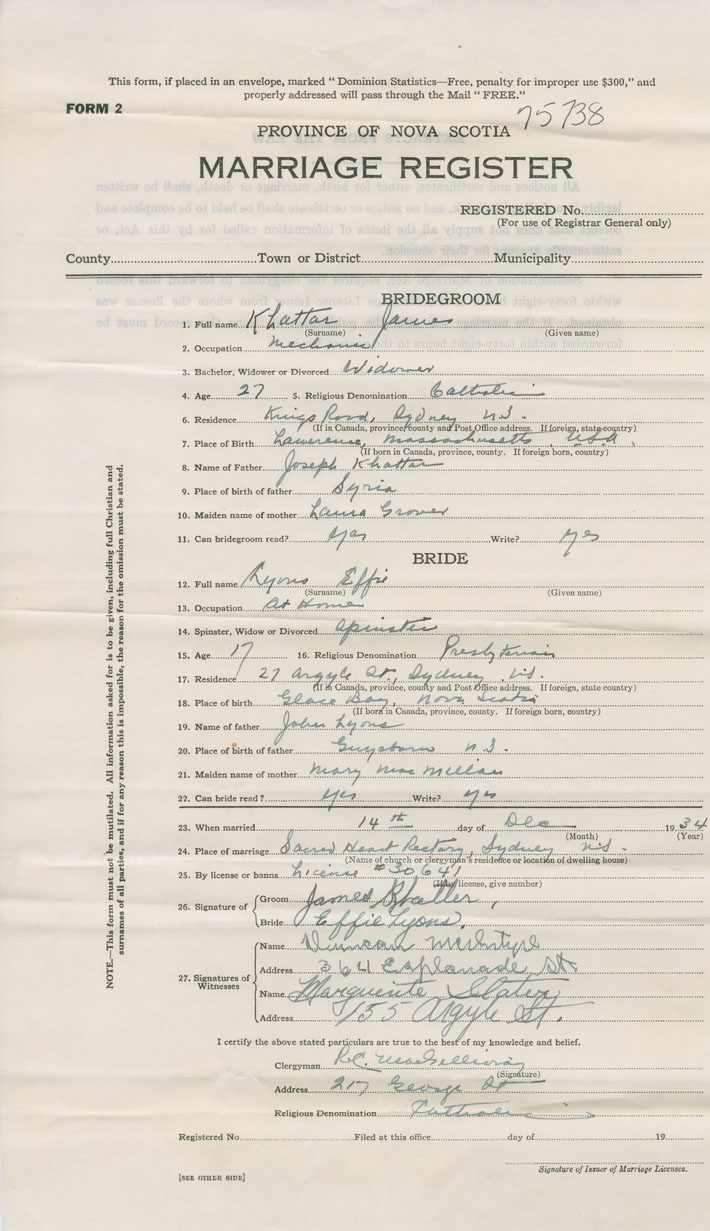 This form, if placed in an envelope, marked " Dominion Statistics—Free, penalty for improper use $300," and
properly addressed will pass through the Mail " FREE."
FORM 2
75738
PROVINCE OF NOVA SCOTIA
MARRIAGE REGISTER
REGISTERED No.
(For use of Registrar General only)
County Town or District Municipality
BRIDEGROOM
1. Full name Khattar James
(Surname) (Given name)
2. Occupation Mechanic
3. Bachelor, Widower or Divorced Widower
4. Age 27 5. Religious Denomination Catholic
6. Residence Kings Road, Sydney N.S.
(If in Canada, province, county and Post Office address. If foreign, state country)
7. Place of Birth Lawerence, Massachusetts, U.S.A.
(If born in Canada, province, county. If foreign born, country)
8. Name of Father Joseph Khattar
9. Place of birth of father Syria
10. Maiden name of mother Laura Grover
11. Can bridegroom read? Yes Write? Yes
BRIDE
12. Full name Lyons Effie
(Surname) (Given name)
13. Occupation At Home
14. Spinster, Widow or Divorced Spinster
15. Age 17 16. Religious Denomination Presbyterian
17. Residence 27 Argyle St, Sydney N.S.
(If in Canada, province, county and Post Office address. If foreign, state country)
18. Place of birth Glace Bay, Nova Scotia
(If born in Canada, province, county. If foreign born, country)
19. Name of father John Lyons
20. Place of birth of father Guysboro N.S.
21. Maiden name of mother Mary MacMillan
22. Can bride read? Yes Write? Yes
23. When married 14th day of Dec 1934
(Month) (Year)
24. Place of marriage Sacred Heart Rectory, Sydney N.S.
(Name of church or clergyman's residence or location of dwelling house)
25. By license or banns License #30641
(If by license, give number)
26. Signature of Groom James Khatter,
Bride Effie Lyons.
27. Signatures of Witnesses
Name Duncan McIntyre
Address 364 Esplanade St
Name Marguerite Slater
Address 155 Argyle St.
I certify the above stated particulars are true to the best of my knowledge and belief.
Clergyman R.C. MacGillivray
(Signature)
Address 217 George St
Religious Denomination Catholic
Registered No. Filed at this office day of 19
Signature of Issuer of Marriage Licenses.
[SEE OTHER SIDE]
NOTE.—This form must not be mutilated. All information asked for is to be given, including full Christian and
surnames of all parties, and if for any reason this is impossible, the reason for the omission must be stated.